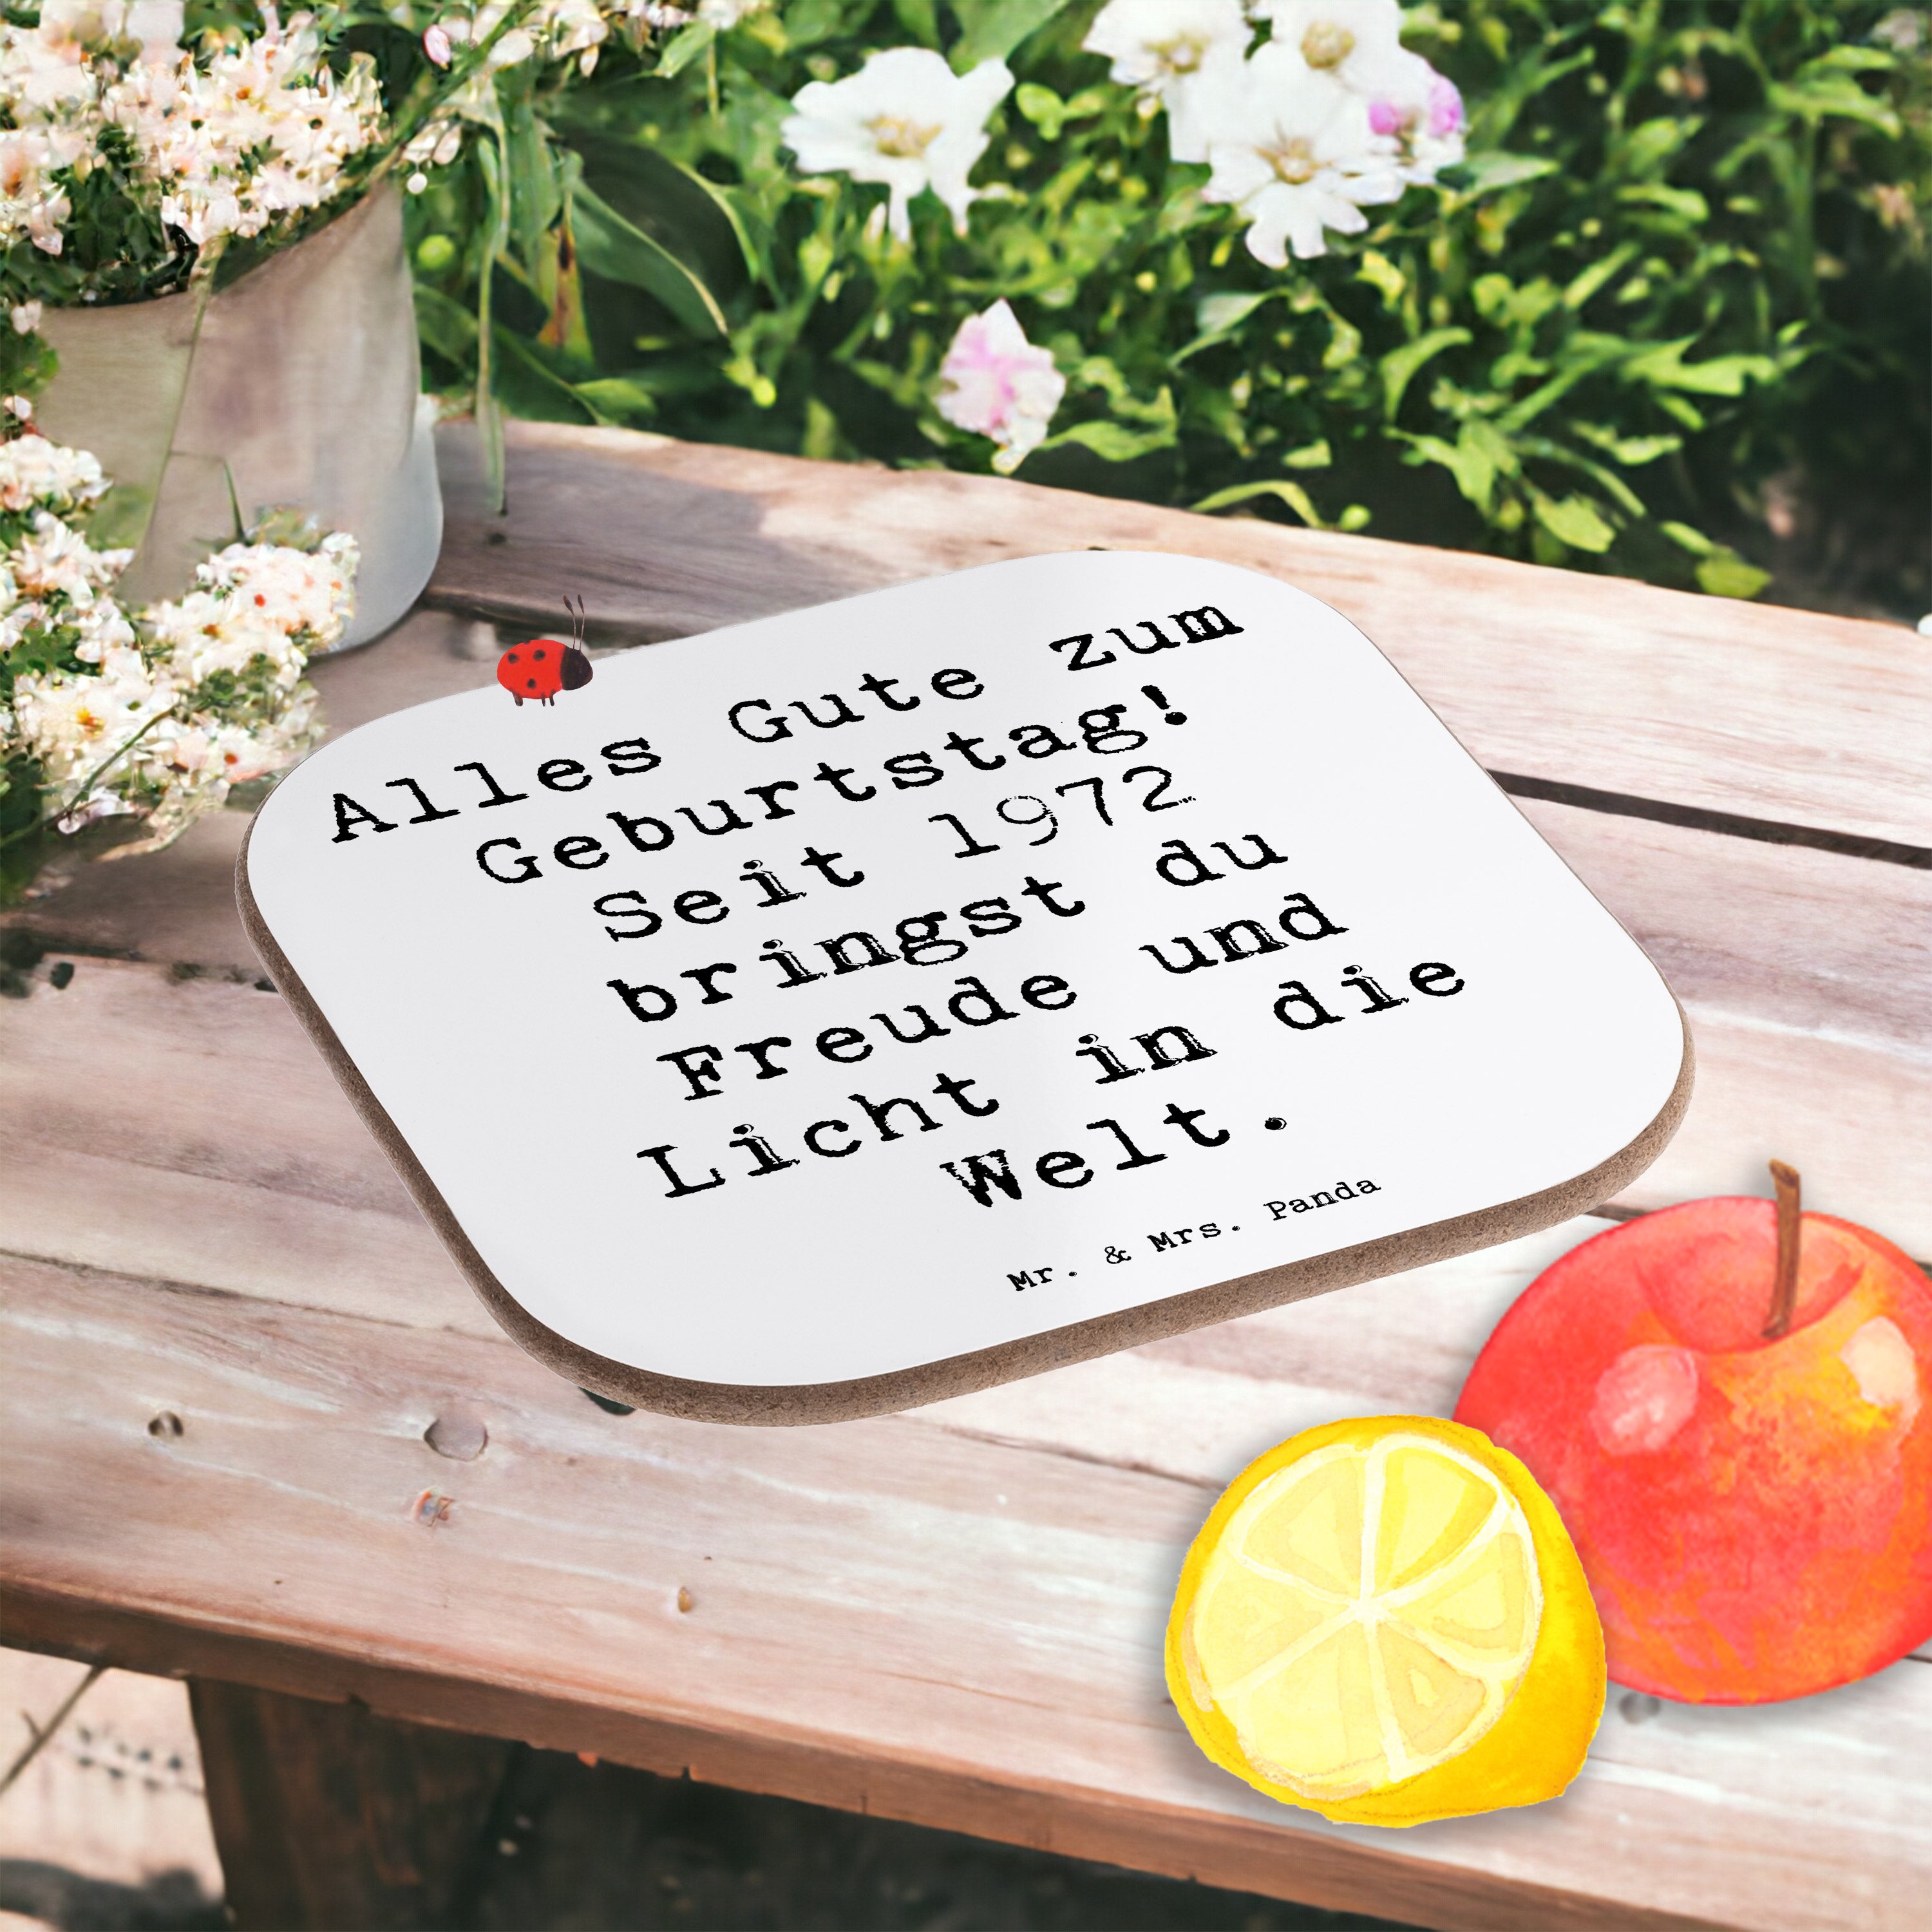 Alles Gute zum
Geburtstag!
Seit 1972
bringst du
Freude und
Licht in die
Welt.
Mr. & Mrs. Panda